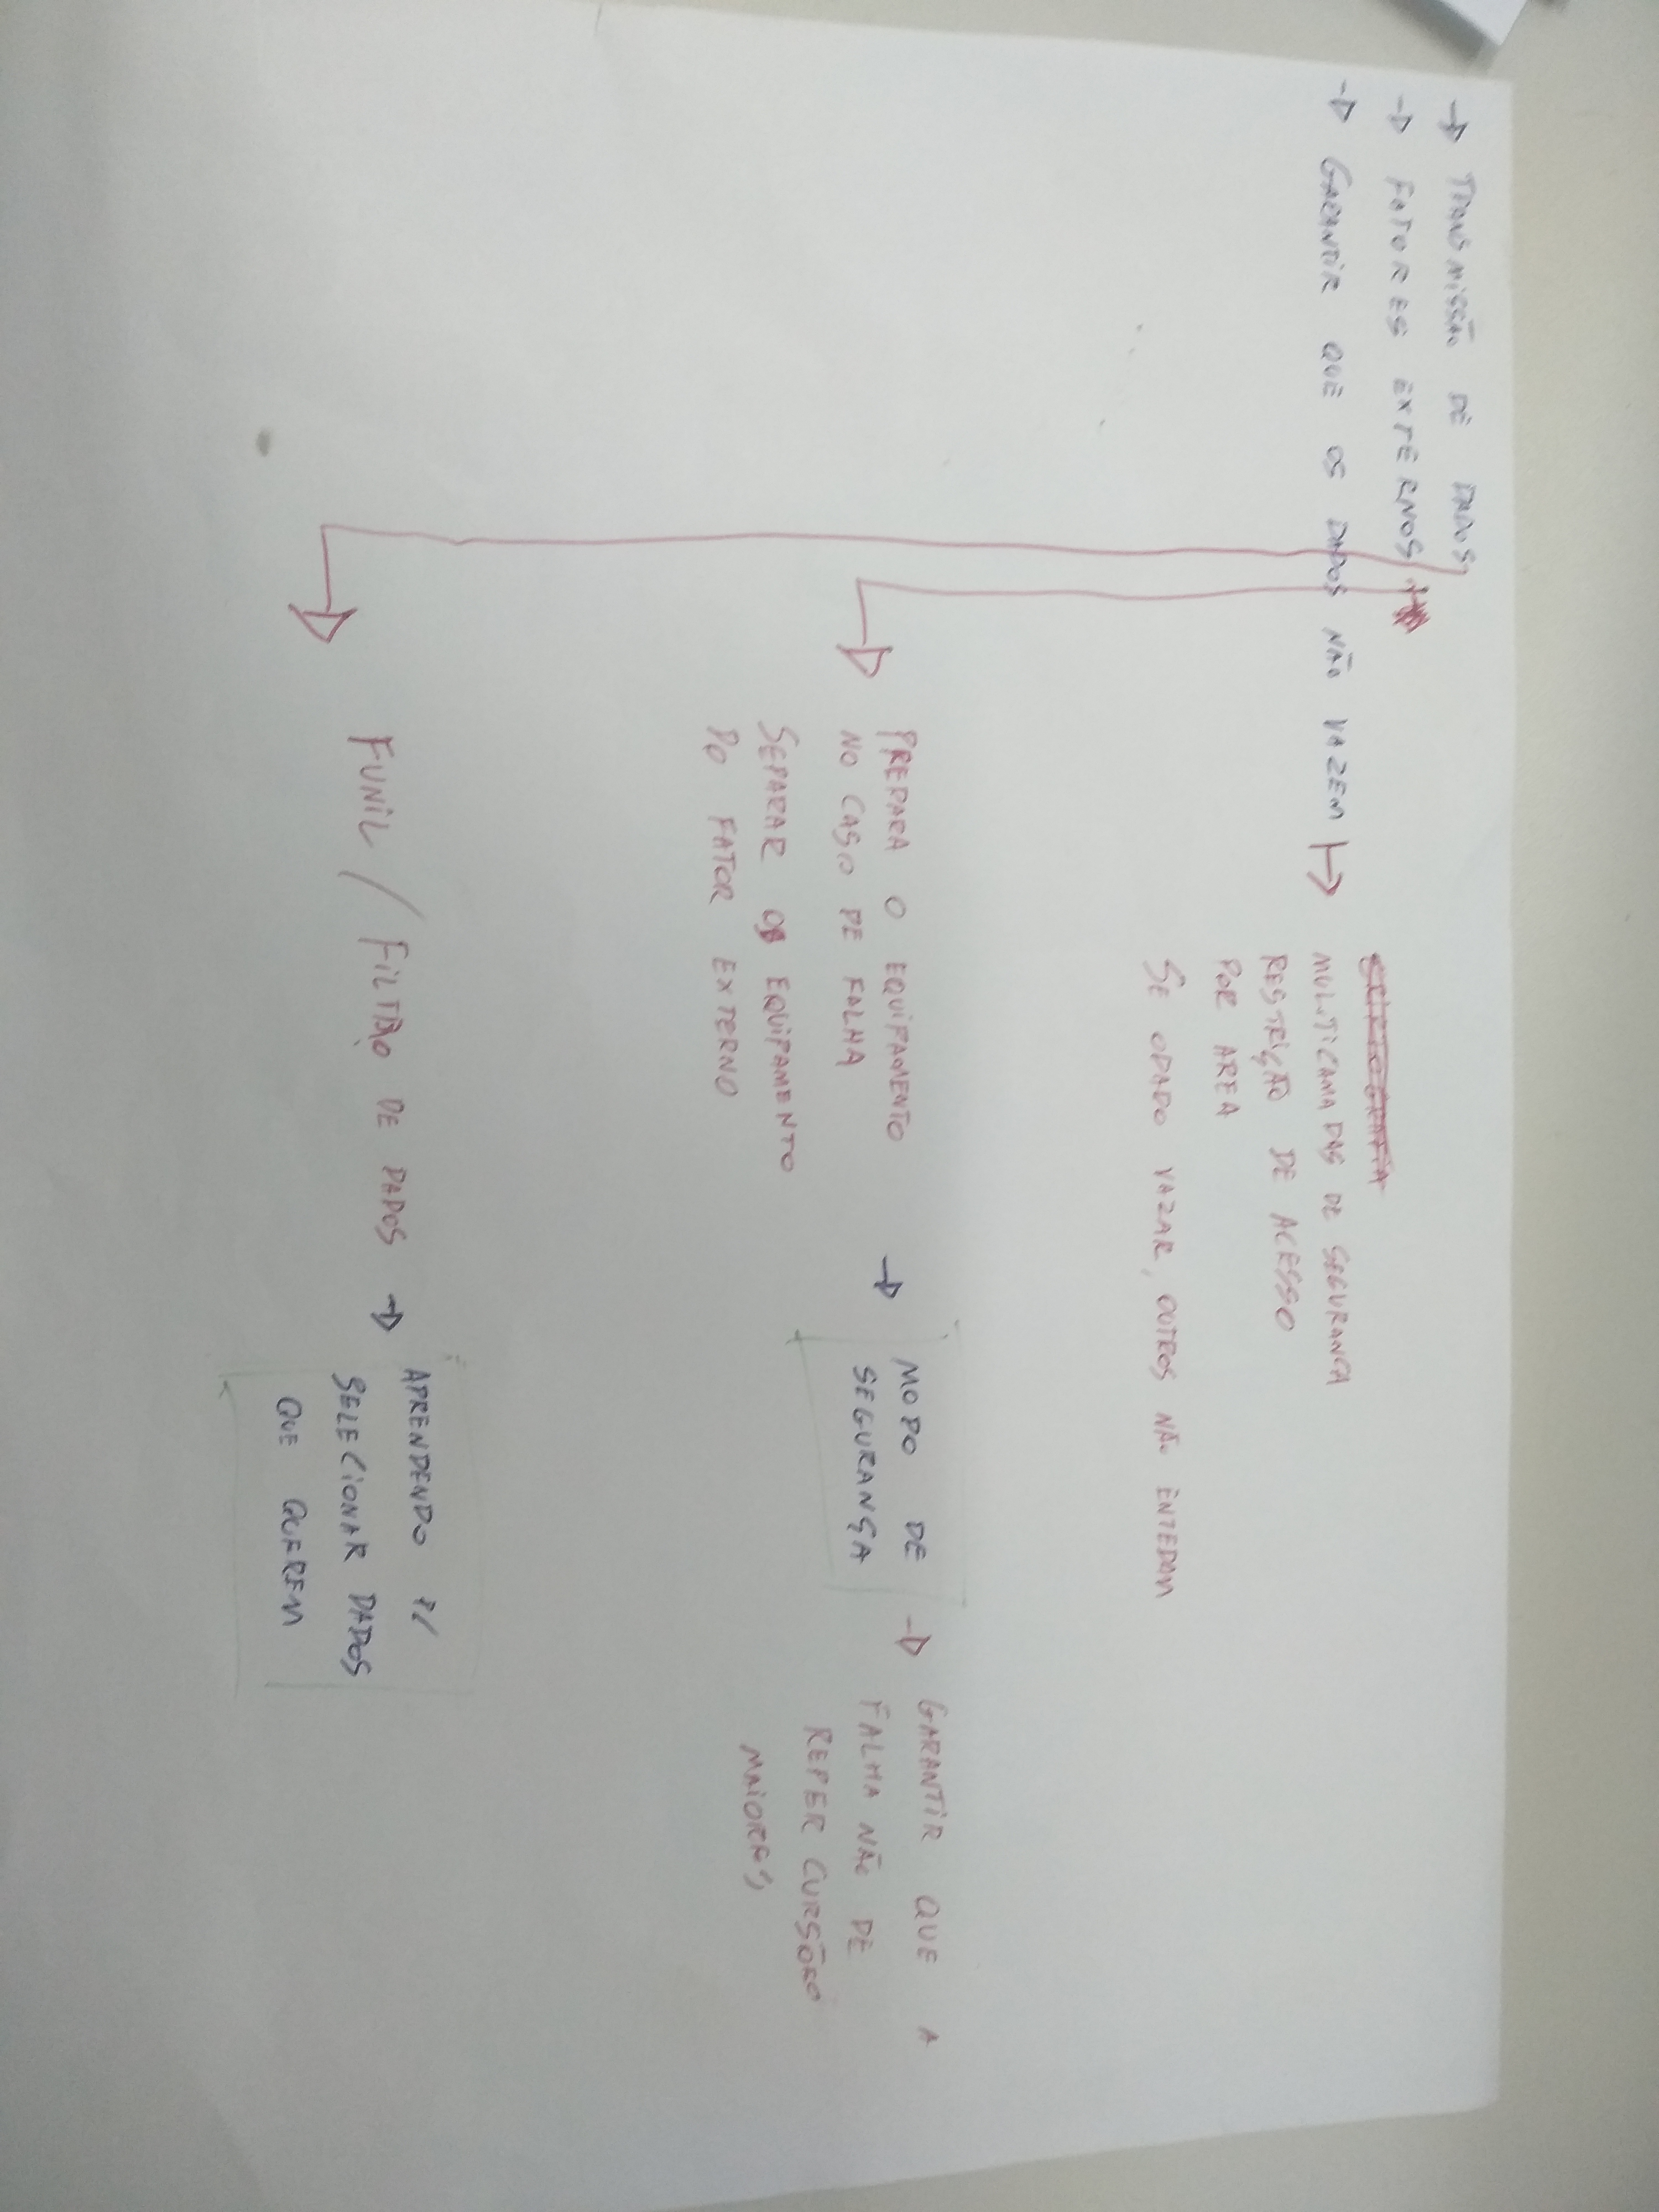 → TRANSMISSÃO DE DADOS
→ FATORES EXTERNOS
→ GARANTIR QUE OS DADOS NÃO VAZEM →
CRIPTOGRAFIA
MULUTICAMADAS DE SEGURANCA
RESTRIÇÃO DE ACESSO
POR AREA
SE ODADO VAZAR, OUTROS NÃO ENTEDAM
PREPARA O EQUIPAMENTO
NO CASO DE FALHA
SEPARAR OS EQUIPAMENTO
DO FATOR EXTERNO
→ MODO DE
SEGURANÇA
→ GARANTIR QUE A
FALHA NÃO DE
REPERCURSÕES
MAIORES
FUNIL / FILTRÃO DE DADOS →
APRENDENDO P/
SELECIONAR DADOS
QUE QUEREM